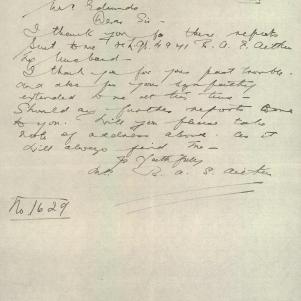 Mrs Edmunds
Dear Sir -
I thank you for these reports
sent to me 4941 R. A. S.
my husband -
I thank you for your past trouble
and also for your sympathy
extended to me at this time -
Should any further reports come
to you. Will you please take
note of address above. as it
will always find me -
Yours
Mrs R. A. S.
No. 1629